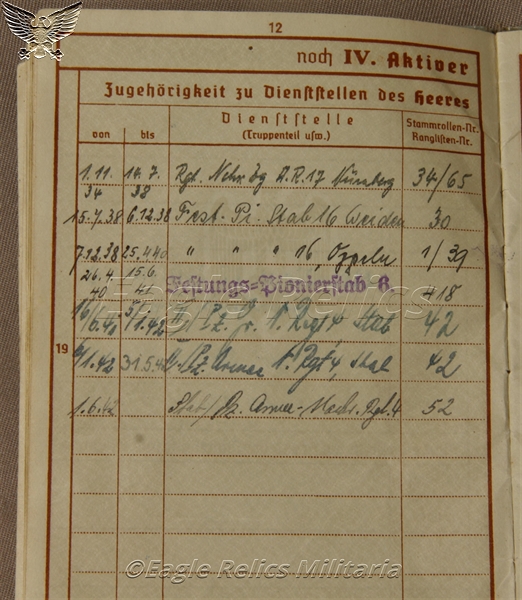 12
noch IV. Aktiver
Zugehörigkeit zu Dienststellen des Heeres
von bis Dienststelle (Truppenteil usw.) Stammrollen-Nr. Ranglisten-Nr.
1.11. 34 14.7. 38 Rgt. A.R.17 Nürnberg 34/65
15.7.38 6.12.38 Fest. Pi. Stab 16 30
7.12.38 25.4.40 " " " 16, Oppeln 1/39
26.4. 40 15.6. 41 Festungs-Pionierstab 418
1.42 Pz. Gr. Rgt 4 Stab 42
19 1.42 31.5.42 Pz. Armee Rgt 4, 42
1.6.42 Stab/Pz. Armee-Nachr. Rgt. 4 52
©Eagle Relics Militaria
©Eagle Relics Militaria